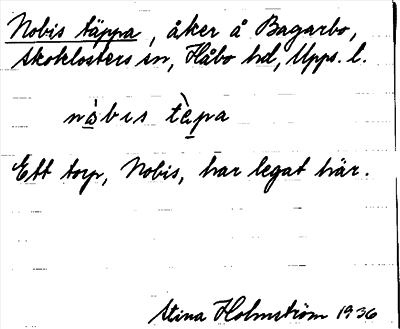 Nobis täppa, åker å Bagarbo,
Skoklosters sn, Håbo hd, Upps. l.
nò̱bɩs tὲp̱a
Ett torp, Nobis, har legat här.
Stina Holmström 1936